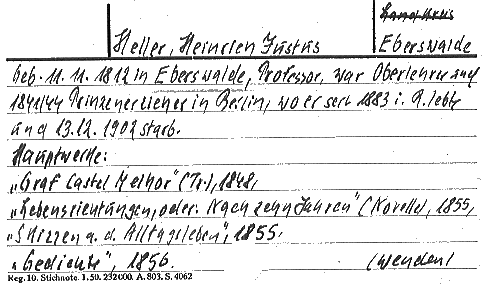 Landkreis
Heller, Heinrich Justus
Eberswalde
Geb. 11. 11. 1812 in Eberswalde, Professor, war Oberlehrer und
1841/44 Prinzenerzieher in Berlin, wo er seit 1883 i. R. lebte
und 13.12. 1902 starb.
Hauptwerke:
„Graf Castel Melhor" (Tr.), 1848,
„Lebensrichtungen, oder: Nach zehn Jahren" (Novelle), 1855,
„Skizzen a. d. Alltagsleben", 1855.
„Gedichte", 1856.
(Wendenl
Reg. 10. Stichnote. 1. 50. 232000. A. 803. S. 4062